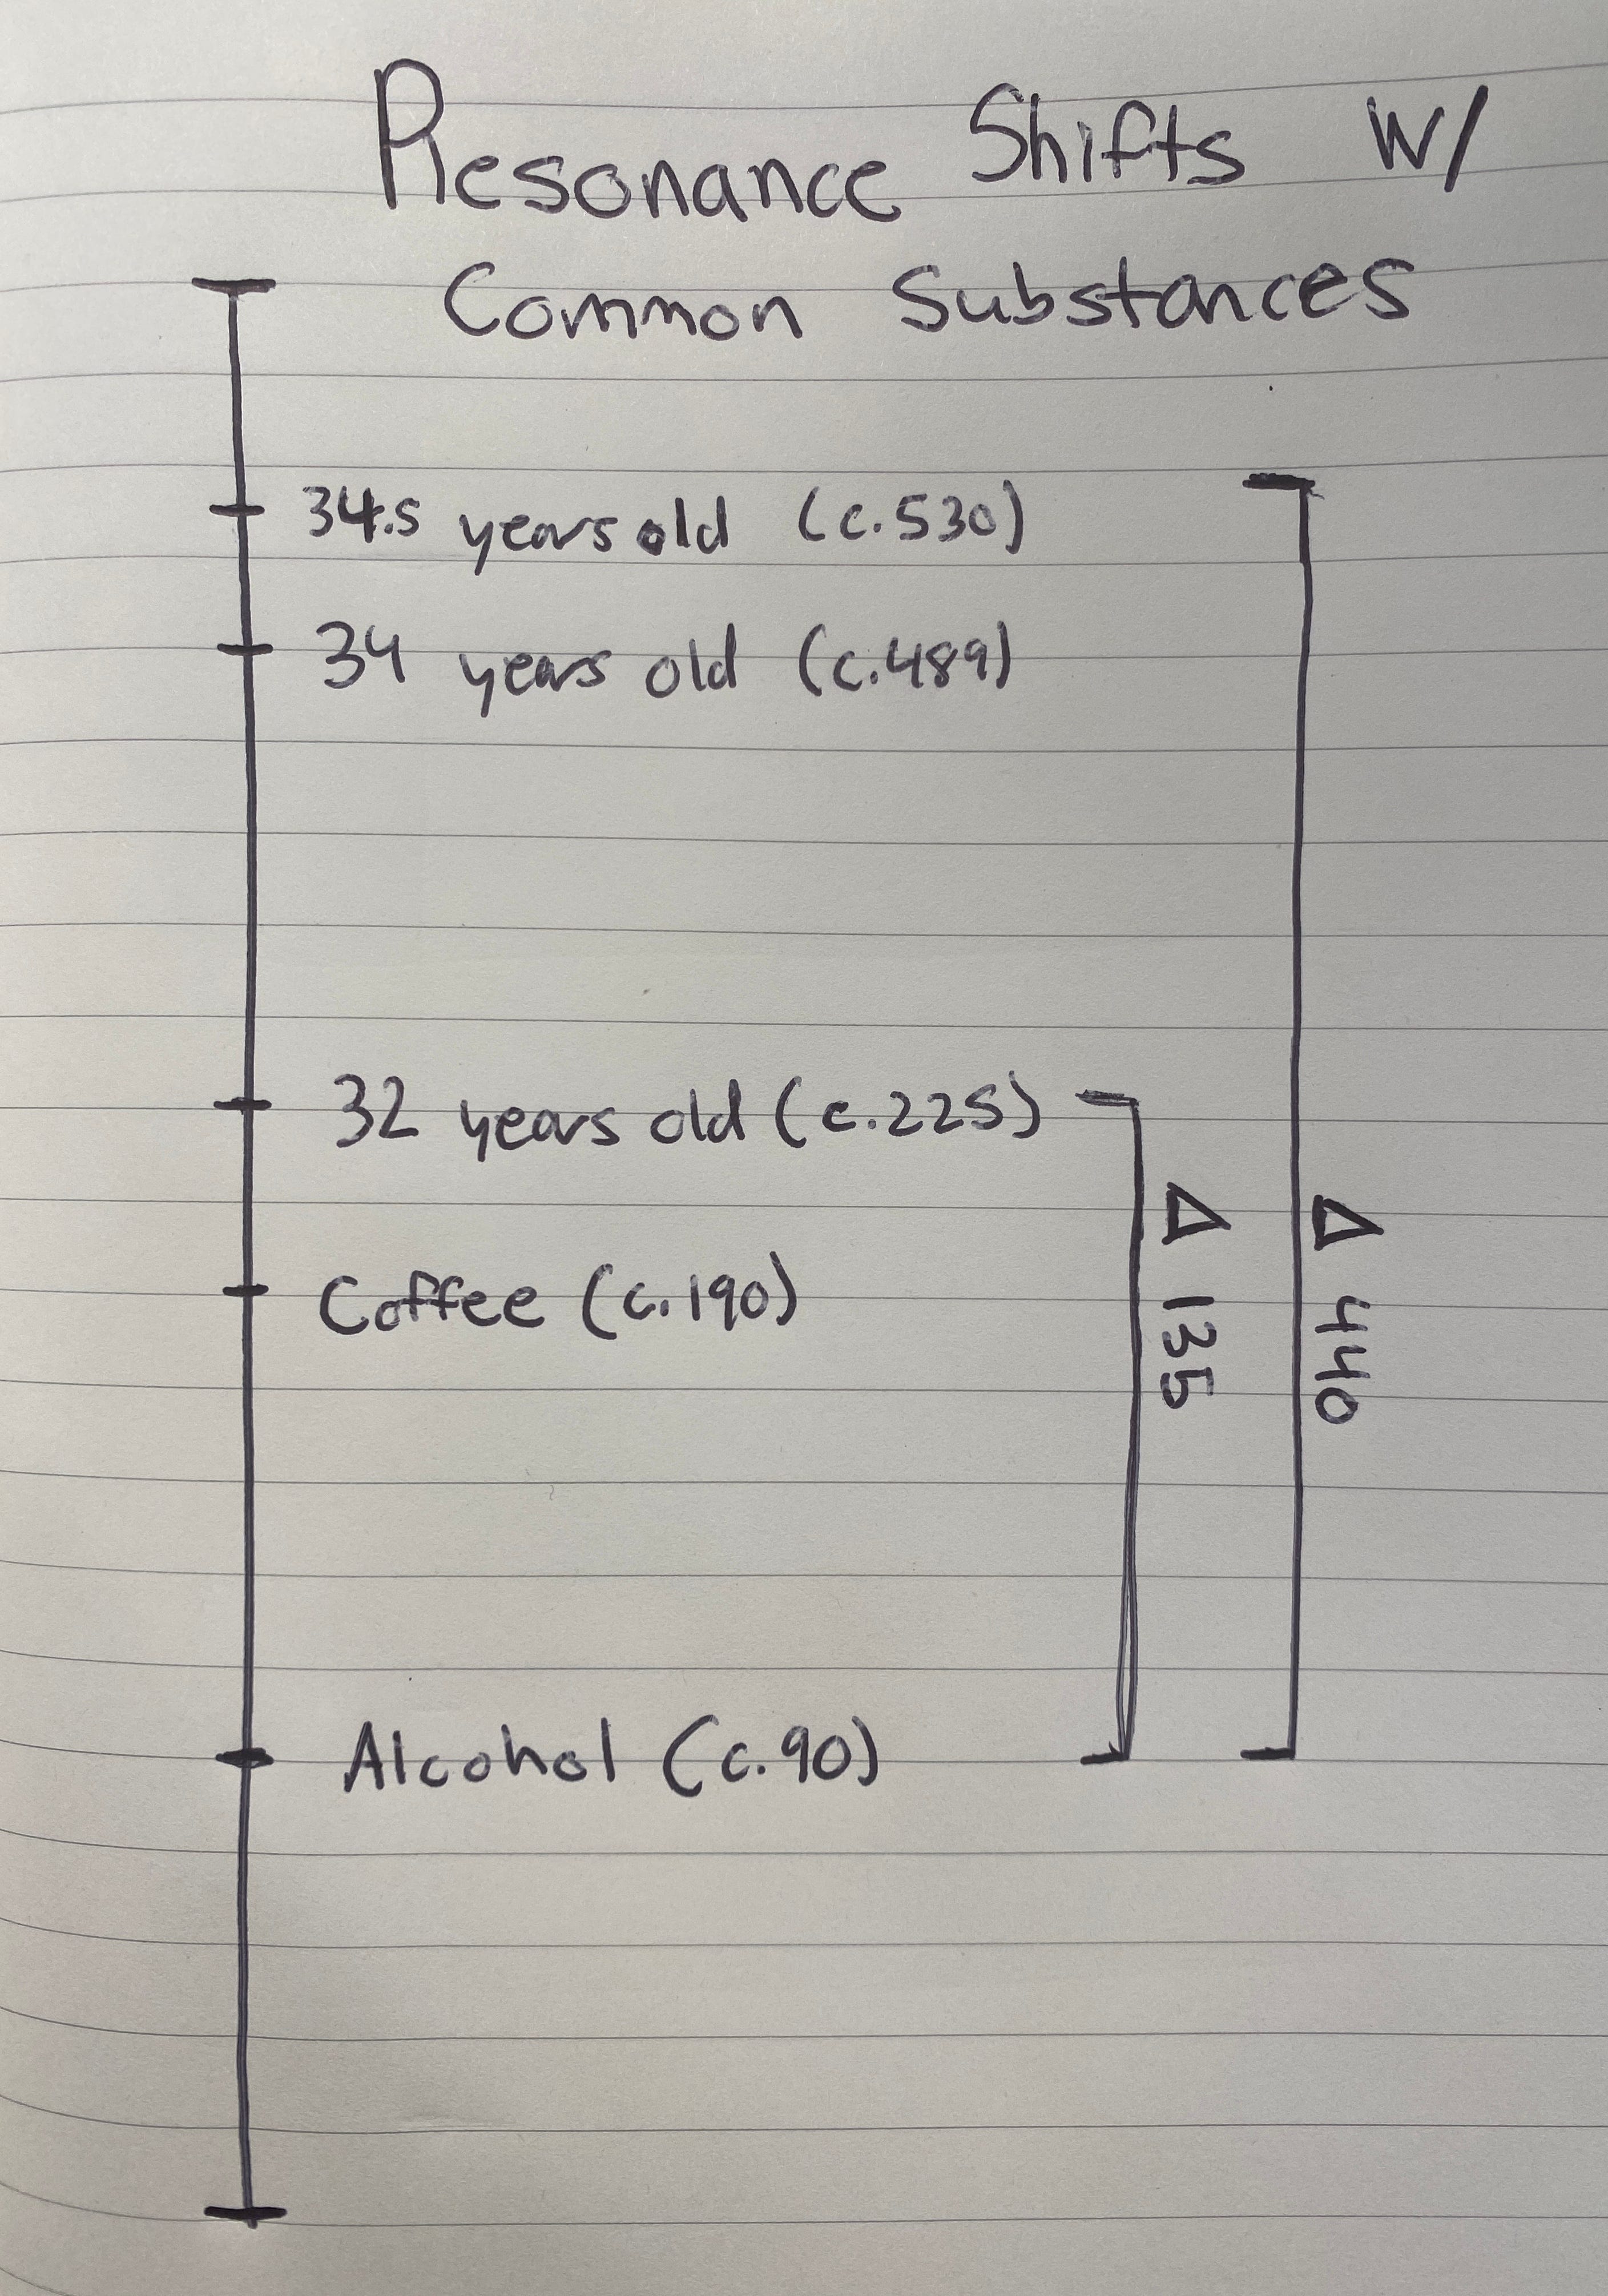 Resonance Shifts W/
Common Substances
34.5 years old (c.530)
34 years old (c.489)
32 years old (c.225)
Coffee (c.190)
Alcohol (c.90)
Δ 135
Δ 440